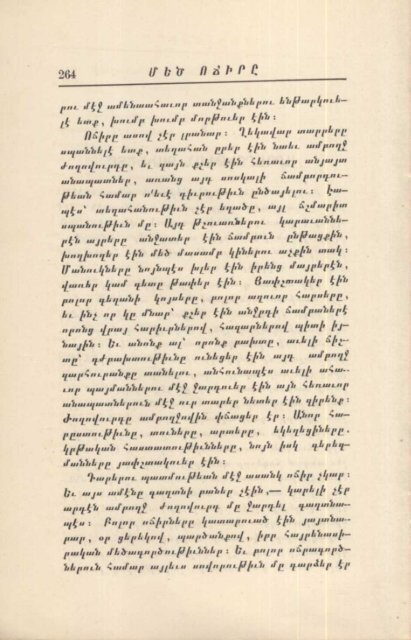 264 ՄԵԾ ՈՃԻՐԸ
րու մէջ ամենաահաւոր տանջանքներու ենթարկուե-
լէ ետք, խումբ խումբ մորթուեր էին։
Ոճիրը ասով չէր լրանար։ Ղեկավար տարրերը
սպաննելէ ետք, տեղահան ըրեր էին նաեւ ամբողջ
ժողովուրդը, եւ զայն քշեր էին հեռաւոր անչայտ
անապատներ, առանց այդ սոսկալի ճամբորդու-
թեան համար ո՛եւէ դիւրութիւն ընծայելու։ Իս-
պէս՝ տեղահանութիւն չէր եղածը, այլ ճշմարիտ
սպանութիւն մը։ Այդ թշուառներու կարաւաննե-
րէն այրերը անջատեր էին ճամբուն ընթացքին,
խողխողեր էին մեծ մասամբ կիներու աչքին տակ։
Մանուկները նոյնպէս խլեր էին իրենց մայրերէն,
վառեր կամ գետը թափեր էին։ Յափշտակեր էին
բոլոր գեղանի կոյսերը, բոլոր աղուոր հարսերը,
եւ ինչ որ կը մնար՝ քշեր էին անջրդի ճամբաներէ
որոնց վրայ հարիւրներով, հազարներով պիտի իյ-
նային։ Եւ անոնք ալ՝ որոնք բախտը, աւելի ճիշ-
տը՝ դժբախտութիւնը ունեցեր էին այդ ամբողջ
զարհուրանքը տանելու, անհունապէս աւելի ահա-
ւոր պայմաններու մէջ ջարդուեր էին այն հեռաւոր
անապատներուն մէջ ուր տարեր նետեր էին զիրենք։
Ժողովուրդը ամբողջովին փճացեր էր։ Անոր հա-
րըստութիւնը, տուները, արտերը, եկեղեցիները,
կրթական հաստատութիւնները, նոյն իսկ գերեզ-
մանները յափշտակուեր էին։
Դարերու պատմութեան մէջ ասանկ ոճիր չկար։
Եւ այս ամէնը գաղտնի բաներ չէին,— կարելի չէր
արդէն ամբողջ ժողովուրդ մը ջարդել գաղտնա-
պէս։ Բոլոր ոճիրները կատարուած էին յայտնա-
բար, օր ցերեկով, պարծանքով, իբր հայրենասի-
րական մեծագործութիւններ։ Եւ բոլոր ոճրագործ-
ներուն համար այլեւս սովորութիւն մը դարձեր էր